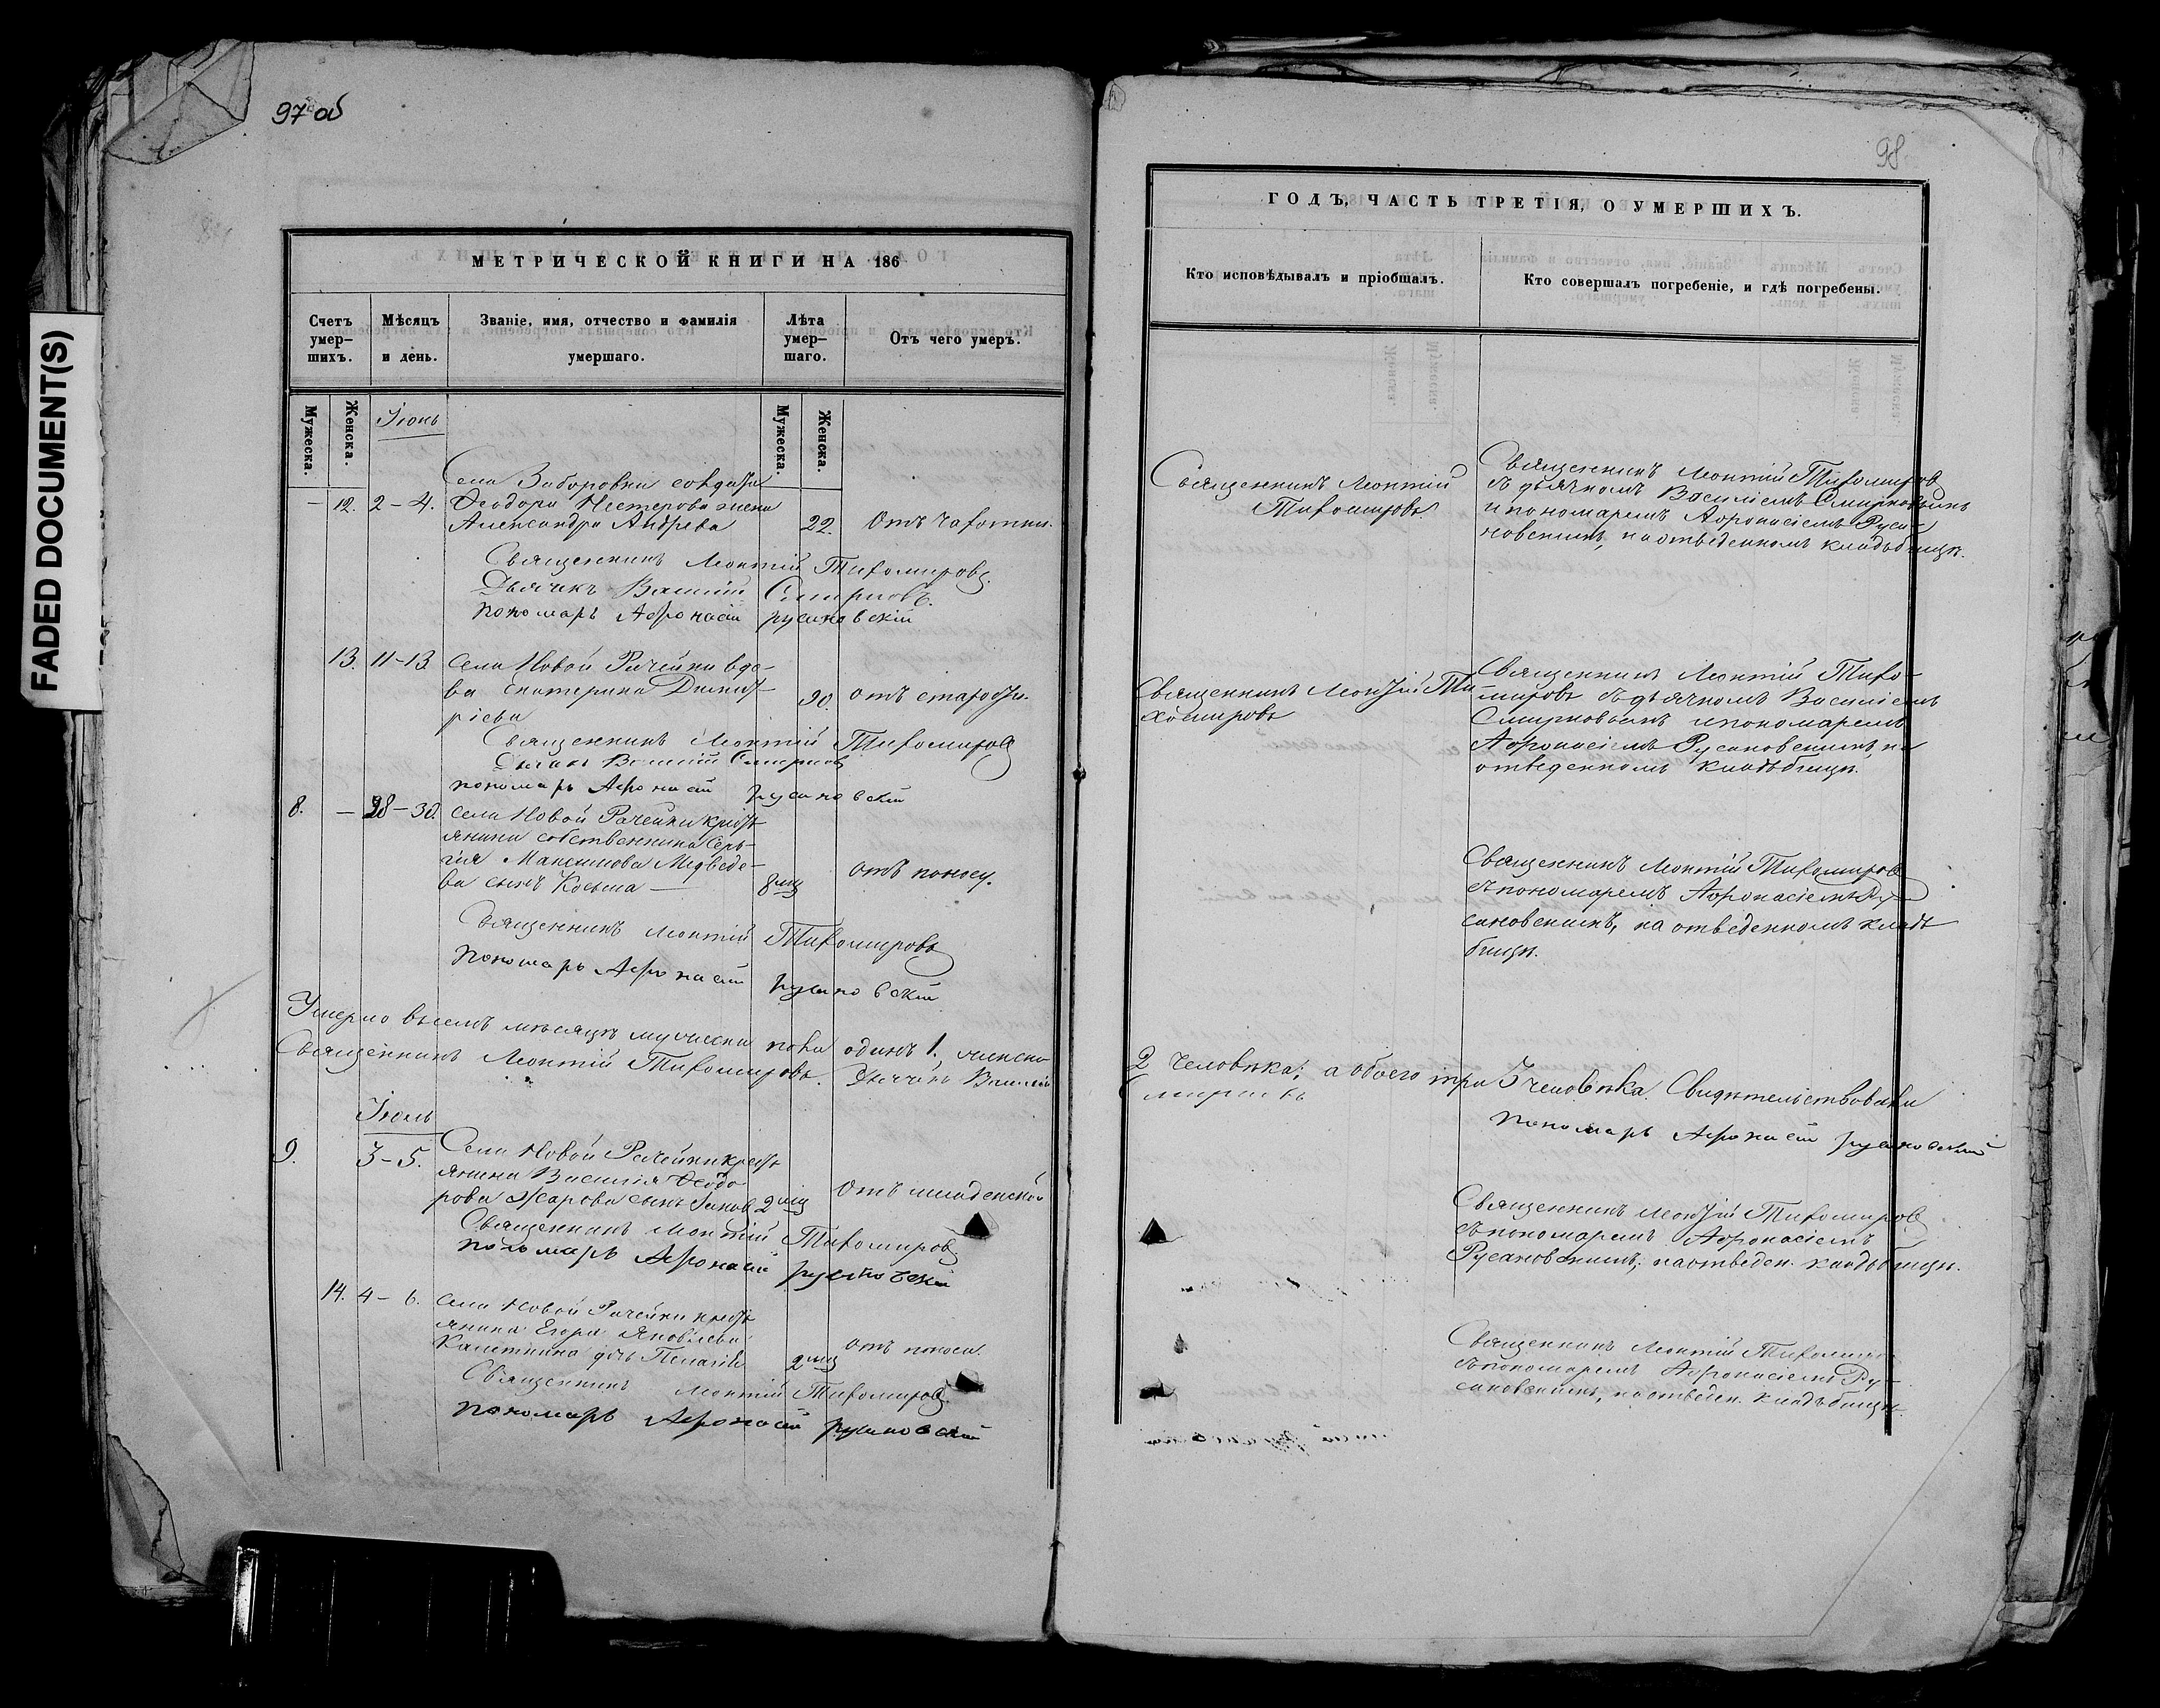 FADED DOCUMENT(S)
97 об
МЕТРИЧЕСКОЙ КНИГИ НА 186
Счетъ умер-
шихъ.
Мѣсяцъ
и день.
Званіе, имя, отчество и фамилія
умершаго.
Лѣта
умер-
шаго.
Отъ чего умеръ.
Мужеска.
Женска.
Іюнь
Мужеска.
Женска.
Села Заборовки солдата
— 12. 2–4. Ѳеодора Нестерова жена
Александра Андреева 22. Отъ чахотки.
Священникъ Леонтій Тихомировъ.
Дьячекъ Василій Смирновъ.
Пономарь Афонасій Русановскій
13. 11–13 Села Новой Рачейки вдо-
ва Екатерина Димит- 90. отъ старости.
ріева
Священникъ Леонтій Тихомировъ
Дьячекъ Василій Смирновъ
пономарь Афонасій Русановскій
8. — 28–30. Села Новой Рачейки кресть
янина собственника Сер-
гія Максимова Медведе- отъ поносу.
ва сынъ Косьма — 8 мц
Священникъ Леонтій Тихомировъ
Пономарь Афонасій Русановскій
Умерло въ семъ месяцѣ мужеска пола одинъ 1. женска
Священникъ Леонтій Тихомировъ. Дьячекъ Василій
Іюль
9. 3–5. Села Новой Рачейки кресть
янина Василія Ѳеодо
рова Жарова сынъ Іаков 2 мц Отъ младенской
Священникъ Леонтій Тихомировъ
Пономарь Афонасій Русановскій
14. 4–6. Села Новой Рачейки кресть
янина Егора Яковлева
дочь Пелагія 2 мц отъ поноса
Священникъ Леонтій Тихомировъ.
Пономарь Афонасій Русановскій
98
ГОДЪ, ЧАСТЬ ТРЕТІЯ, О УМЕРШИХЪ.
Кто исповѣдывалъ и пріобщалъ.
Кто совершалъ погребеніе, и гдѣ погребены.
Священникъ Леонтій
Тихомировъ.
Священникъ Леонтій Тихомиров
съ дьячкомъ Василіемъ Смирновымъ
и пономаремъ Афонасіемъ Руса-
новскимъ, на отведенномъ кладбищѣ.
Священникъ Леонтій Ти-
хомировъ
Священникъ Леонтій Тихо-
мировъ съ дьячкомъ Василіемъ
Смирновымъ и пономаремъ
Афонасіемъ Русановскимъ, на
отведенномъ кладбищѣ.
Священникъ Леонтій Тихомиров
съ пономаремъ Афонасіемъ Ру-
сановскимъ, на отведенномъ клад
бищѣ.
2 человѣка; а обоего три 3 человѣка. Свидѣтельствовали
Смирновъ Пономарь Афонасій Русановскій
Священникъ Леонтій Тихомиров
съ пономаремъ Афонасіемъ
Русановскимъ; на отведен. кладбищѣ.
Священникъ Леонтій Тихомиро
съ пономаремъ Афонасіемъ Ру-
сановскимъ, на отведен. кладбищѣ.